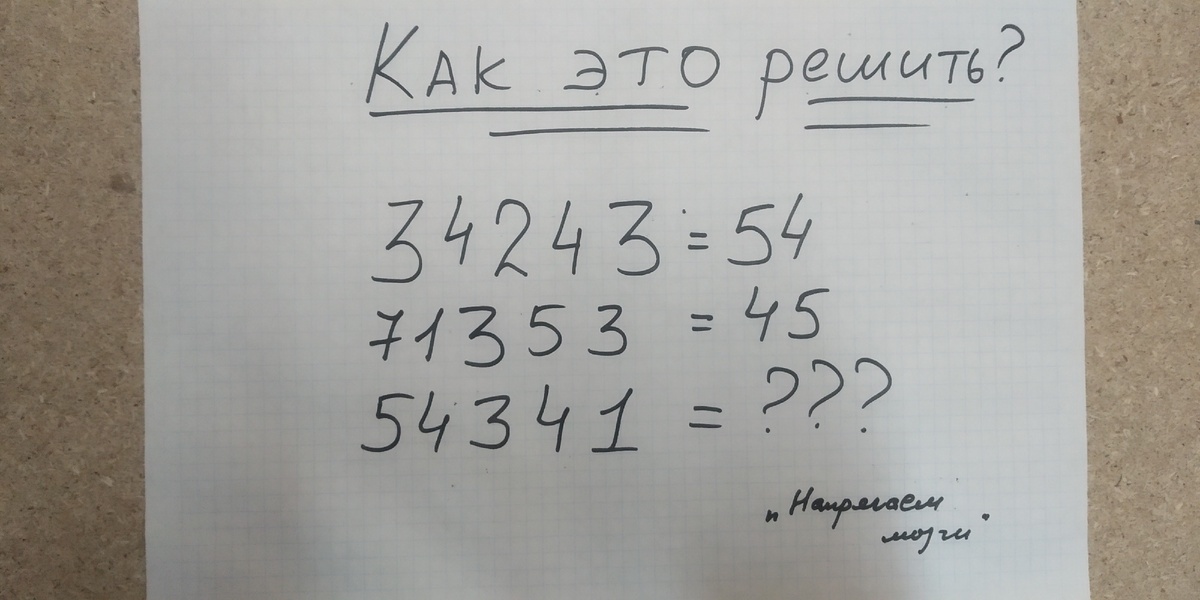 Как это решить?
34243 = 54
71353 = 45
54341 = ???
„Напрягаем
мозги"